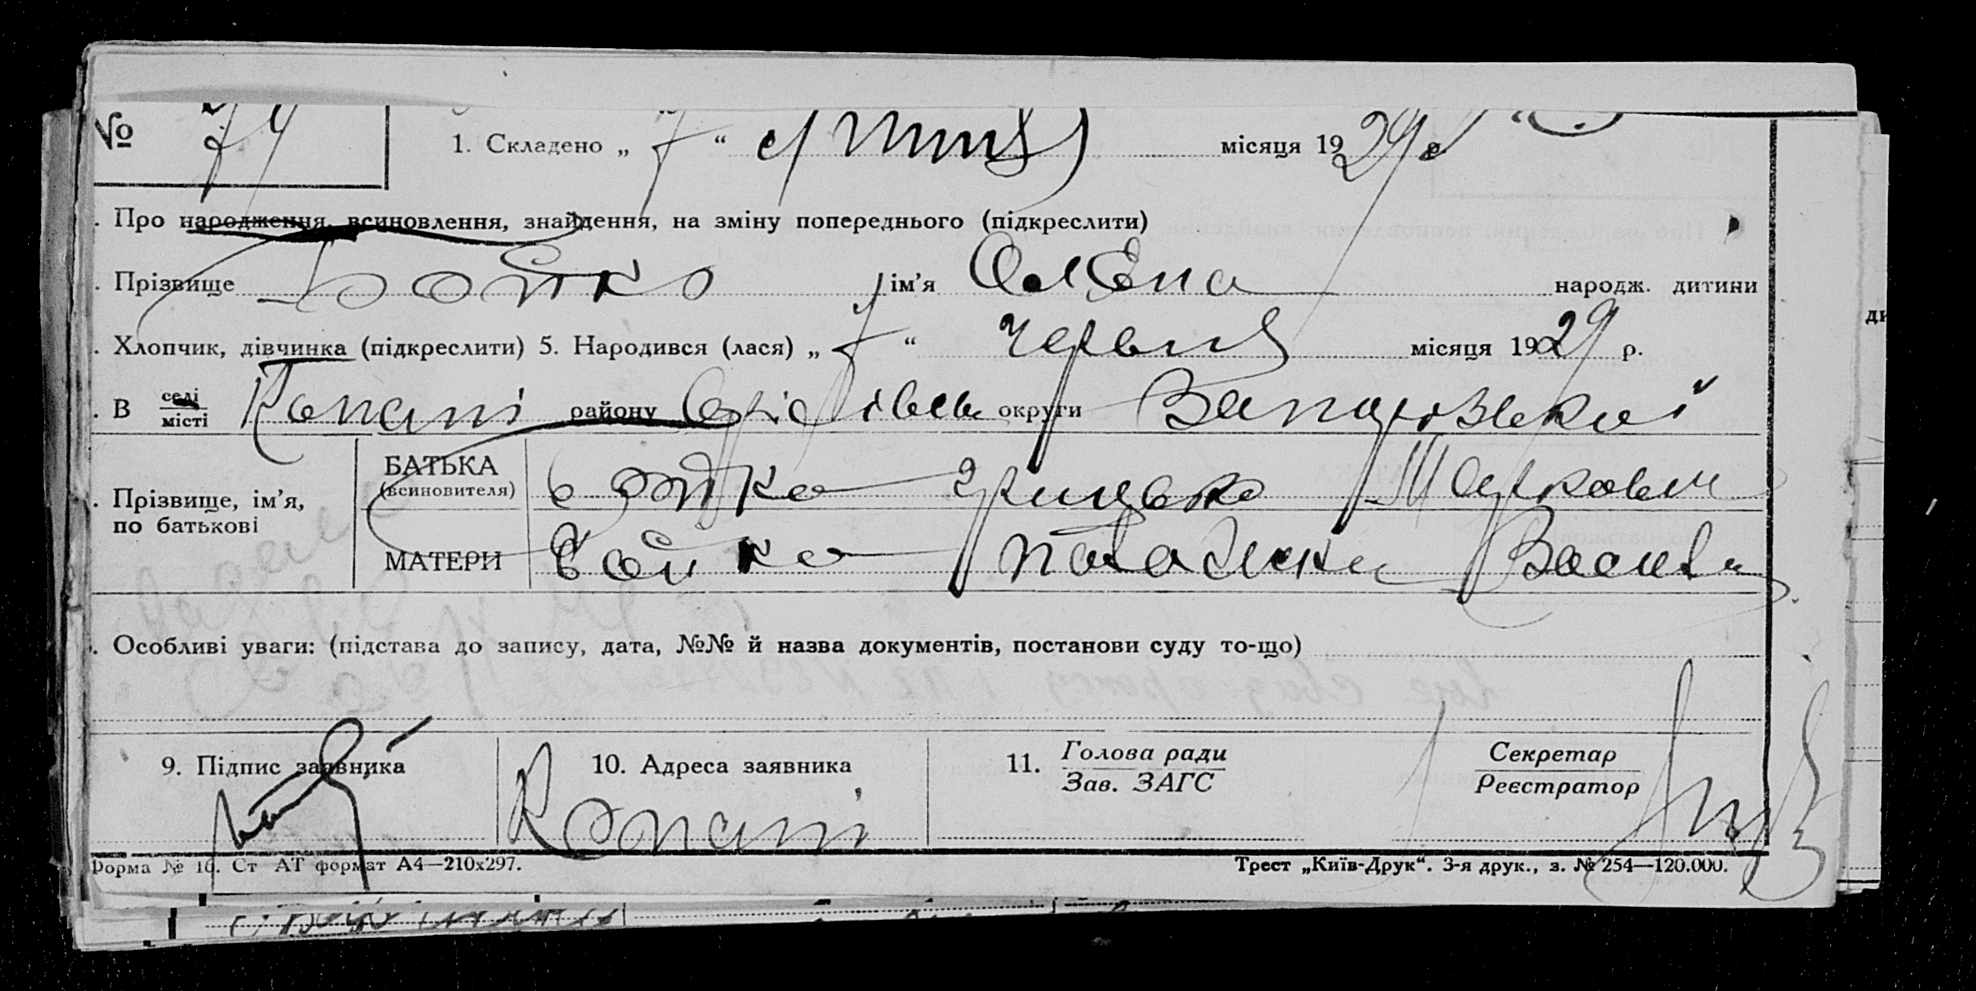 № 74 1. Складено „ 7 “ липня місяця 1929 р
. Про народження, всиновлення, знайдення, на зміну попереднього (підкреслити)
. Прізвище Бойко ім’я Олена народж. дитини
. Хлопчик, дівчинка (підкреслити) 5. Народився (лася) „ 7 “ червня місяця 1929 р.
. В селі місті Копані району округи Запорізької
. Прізвище, ім’я, по батькові
БАТЬКА (всиновителя) Бойко Грицько Маркович
МАТЕРИ Бойко Васил
. Особливі уваги: (підстава до запису, дата, №№ й назва документів, постанови суду то-що)
9. Підпис заявника 10. Адреса заявника 11. Голова ради Секретар
Зав. ЗАГС Реєстратор
Копані
Форма № 10. Ст АТ формат А4—210x297. Трест „Київ-Друк“. 3-я друк., з. № 254—120.000.